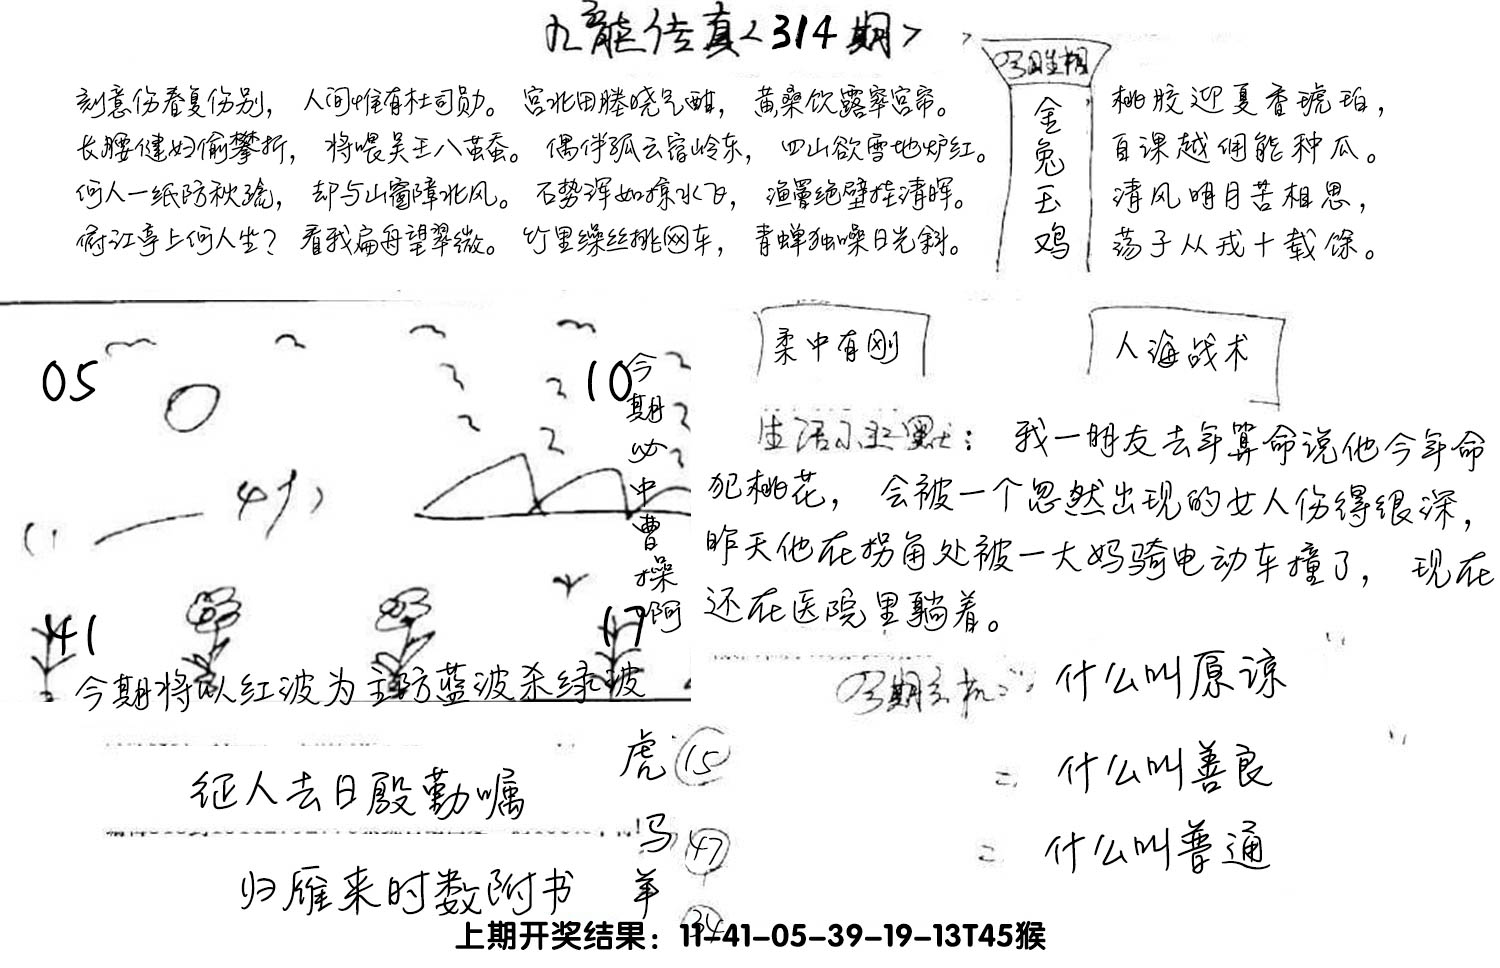 九龙传真<314期>
刻意伤春复伤别，人间惟有杜司勋。宫北田塍晓气酣，黄桑饮露窣宫帘。
长腰健妇偷攀折，将喂吴王八茧蚕。偶伴孤云宿岭东，四山欲雪地炉红。
何人一纸防秋疏，却与山窗障北风。石势浑如掠水飞，渔罾绝壁挂清晖。
俯江亭上何人坐？看我扁舟望翠微。竹里缲丝挑网车，青蝉独噪日光斜。
金兔玉鸡
桃胶迎夏香琥珀，
自课越佣能种瓜。
清风明月苦相思，
荡子从戎十载馀。
05
10
41
17
今期必中曹操啊
今期将以红波为主防蓝波杀绿波
柔中有刚
人海战术
我一朋友去年算命说他今年命
犯桃花，会被一个忽然出现的女人伤得很深，
昨天他在拐角处被一大妈骑电动车撞了，现在
还在医院里躺着。
什么叫原谅
什么叫善良
什么叫普通
征人去日殷勤嘱
归雁来时数附书
虎 15
马 47
羊 34
上期开奖结果：11-41-05-39-19-13T45猴